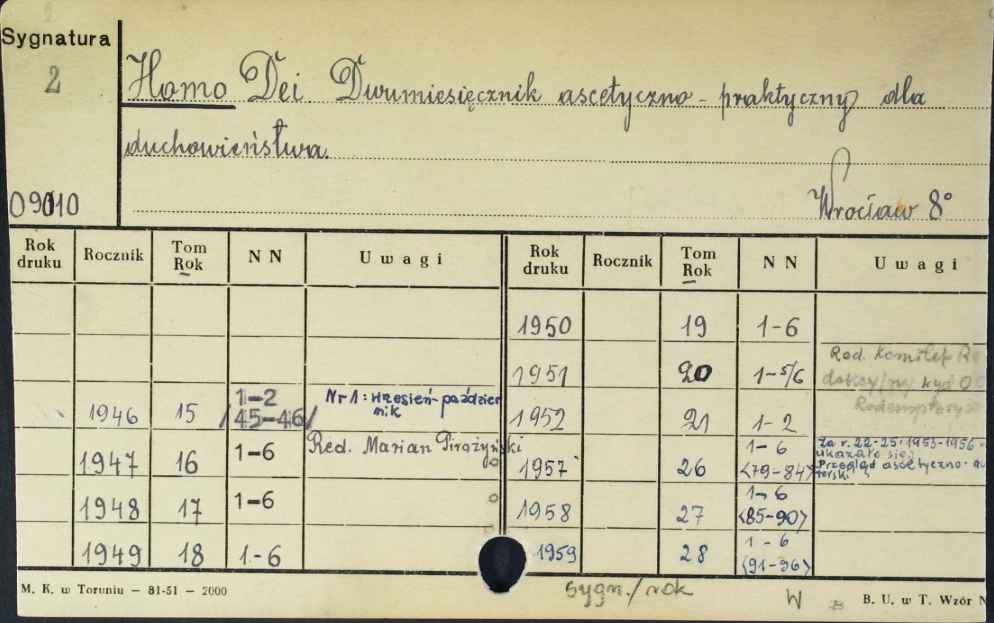 Sygnatura
2
Homo Dei. Dwumiesięcznik ascetyczno-praktyczny dla
duchowieństwa.
09010
Wrocław 8°
Rok druku Rocznik Tom Rok N N Uwagi Rok druku Rocznik Tom Rok N N Uwagi
1950 19 1-6
1951 20 1-5/6 Red. Komitet
1946 15 1-2 /45-46/ Nr 1: wrzesień-paździer
nik
1952 21 1-2
1947 16 1-6 Red. Marian Pirożyński
1957 26 1-6 <79-84> Za r. 22-25.1953-1956
ukazało się:
Przegląd ascetyczno.
1948 17 1-6 1958 27 1-6 <85-90>
1949 18 1-6 1959 28 1-6 <91-96>
M. K. w Toruniu — 81-51 — 2000
sygn./rok
W
B. U. w T. Wzór N